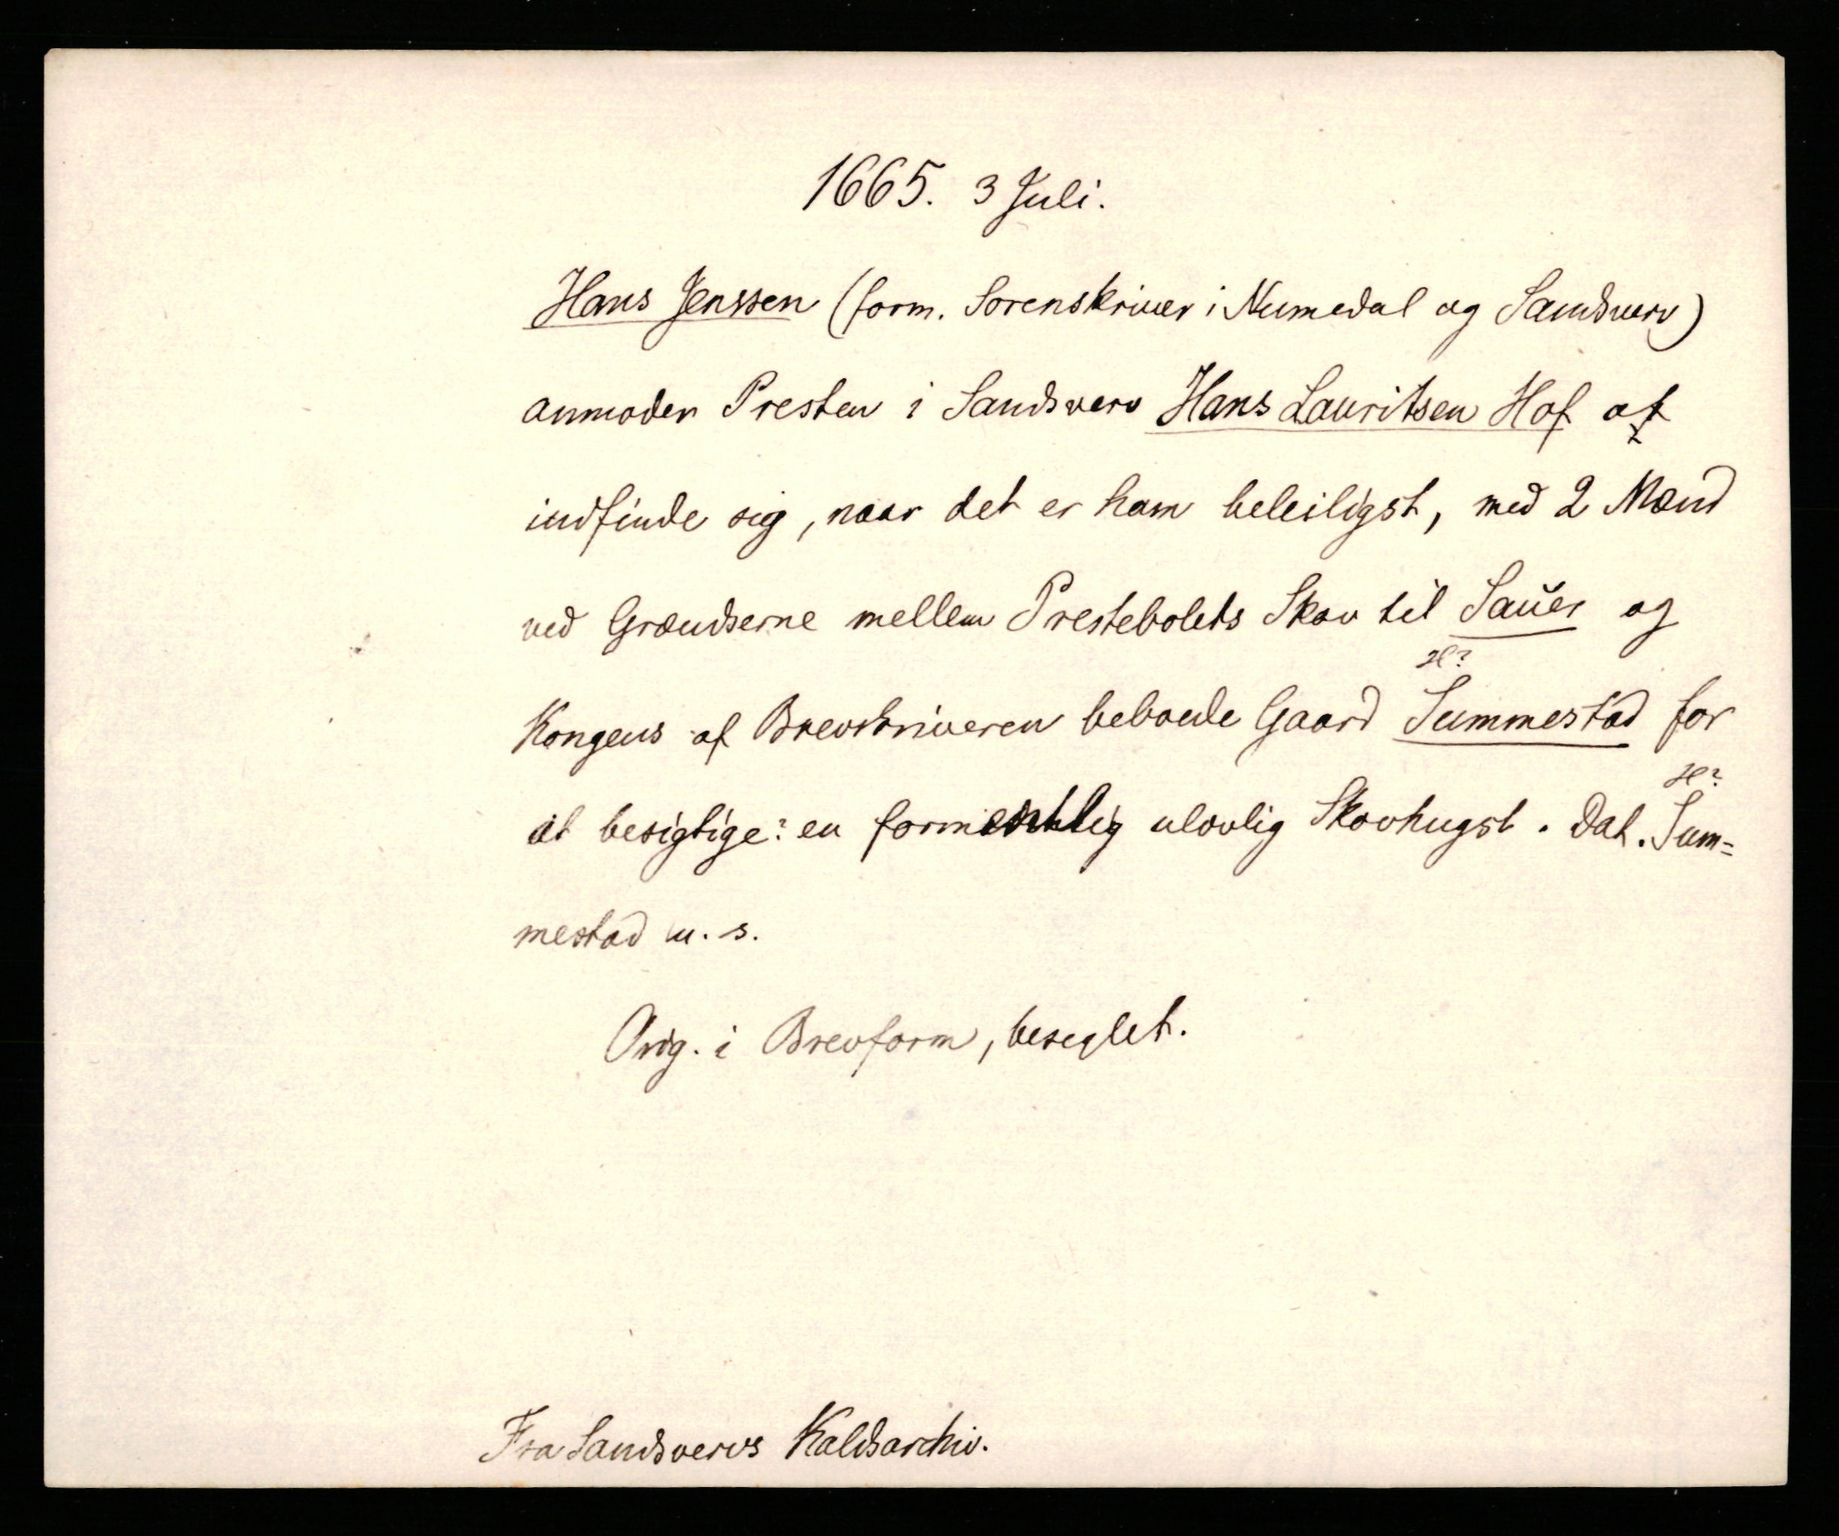 1665. 3 Juli.
Hans Jenssen (form. Sorenskriver i Numedal og Sandsverv)
anmoder Presten i Sandsverv Hans Lauritsen Hof at
indfinde sig, naar det er ham beleiligst, med 2 Mænd
ved Grændserne mellem Prestebolets Skov til Sauer og
H?
Kongens af Brevskriveren beboede Gaard Summestad for
H?
at besigtige: en formentlig ulovlig Skovhugst. Dat. Sum=
mestad u. s.
Orig. i Brevform, beseglet.
Fra Sandsvervs Kaldsarchiv.